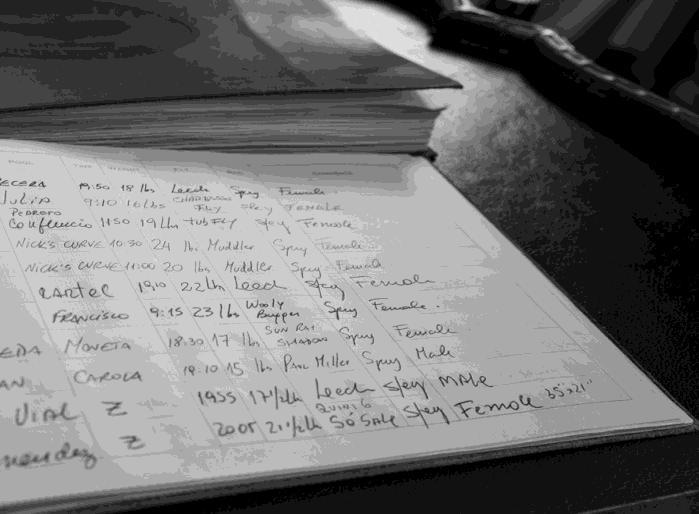 POOL TIME WEIGHT FLY
19:50 18 lbs Leech Spey Female
Julia 9:10 16 lbs FLY Spey FEMALE
PEDRERO
Confluencia 1150 19 lbs tub FLY Spey Female
NICK'S CURVE 10:30 24 lbs Muddler Spey Female
NICK'S CURVE 11:00 20 lbs Muddler Spey Female
CARTEL 1910 22 lbs Leech Spey Female
FRANCISCO 9:15 23 lbs Wooly Bugger Spey Female.
MONETA 18:30 17 lbs SUN RAY SHADOW Spey Female
CAROLA 19:10 15 lbs Panc Miller Spey Male
VIAL Z 1955 17 1/2 lb Leech Spey MALE
Z 2005 21 1/2 lb Spey Female 35"x21"